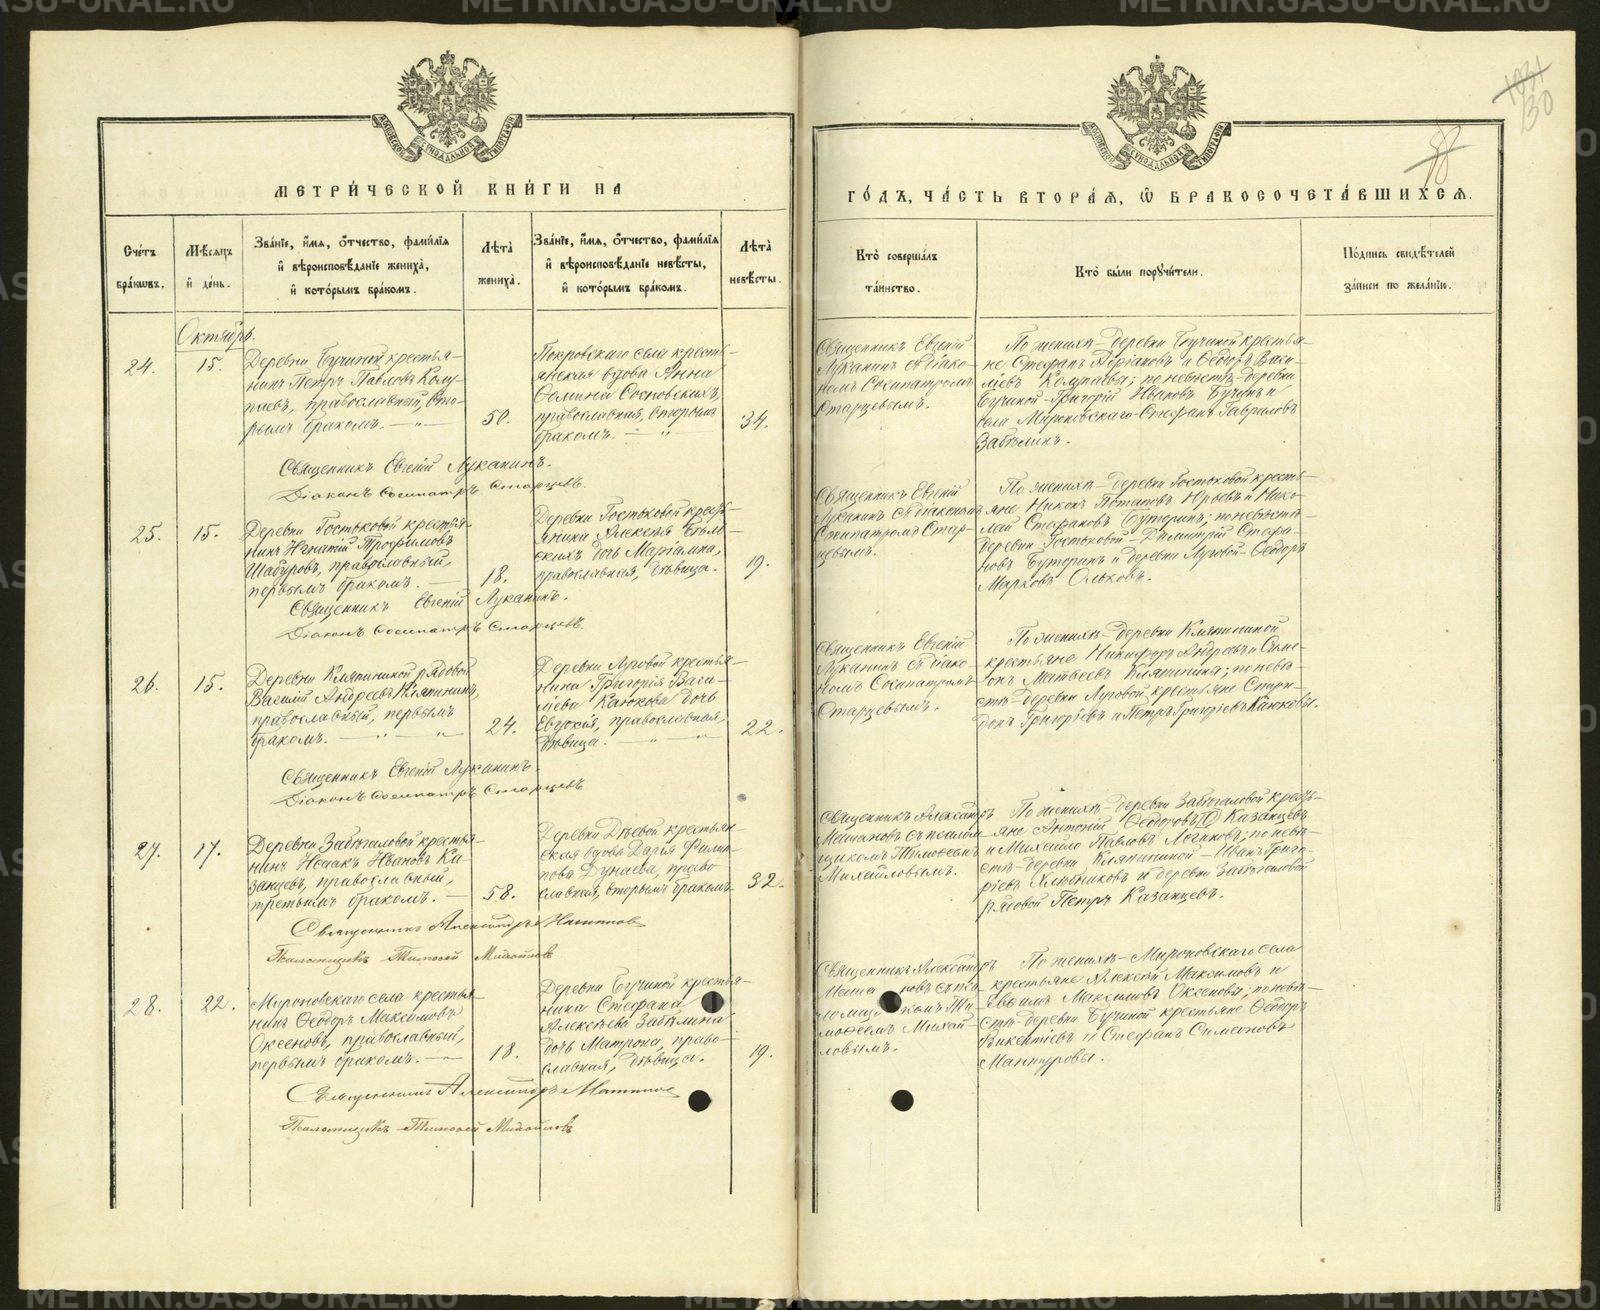 МЕТРИ́ЧЕСКОЙ КНИ́ГИ НА
ГО́ДЪ, ЧА́СТЬ ВТОРА́Я, Ѡ БРАКОСОЧЕТА́ВШИХСЯ.
Сче́тъ бра́кѡвъ.
Мѣ́сяцъ и҆ де́нь.
Зва́нїе, и҆́мя, ѻ҆́тчество, фами́лїя и҆ вѣроисповѣ́данїе жениха̀, и҆ кото́рымъ бра́комъ.
Лѣ́та жениха̀.
Зва́нїе, и҆́мя, ѻ҆́тчество, фами́лїя и҆ вѣроисповѣ́данїе невѣ́сты, и҆ кото́рымъ бра́комъ.
Лѣ́та невѣ́сты.
Кто̀ соверша́лъ та́инство.
Кто̀ бы́ли порꙋчи́тели.
По́дпись свидѣ́телей за́писи по жела́нїю.
130
88
Октябрь.
24.
15.
Деревни Бучиной крестья-
нинъ Петръ Павловъ Колу-
паевъ, православный, вто-
рымъ бракомъ.
50.
Покровскаго села кресть-
янская вдова Анна
Ѳомина Сосновскихъ,
православная, вторымъ
бракомъ.
34.
Священникъ Евгеній
Луканинъ съ діако-
номъ Сосипатромъ
Старцевымъ.
По женихѣ – деревни Бучиной крестья-
не Стефанъ Адріановъ и Ѳеодоръ Васи-
ліевъ Колупаевы; по невѣстѣ – деревни
Бучиной – Григорій Ивановъ Бучинъ и
села Мироновскаго – Стефанъ Гавриловъ
Забѣлинъ.
Священникъ Евгеній Луканинъ.
Діаконъ Сосипатръ Старцевъ.
25.
15.
Деревни Гостьковой крестья-
нинъ Игнатій Трофимовъ
Шабуровъ, православный,
первымъ бракомъ.
18.
Деревни Гостьковой кресть-
янина Алексѣя
дочь Маріамна,
православная, дѣвица.
19.
Священникъ Евгеній
Луканинъ съ діакономъ
Сосипатромъ Стар-
цевымъ.
По женихѣ – деревни Гостьковой кресть-
яне Никонъ Потаповъ Юрьевъ и Нико-
лай Стефановъ Буторинъ; по невѣстѣ –
деревни Гостьковой – Димитрій Стефа-
новъ Буторинъ и деревни Луговой – Ѳеодоръ
Марковъ Ольковъ.
Священникъ Евгеній Луканинъ.
Діаконъ Сосипатръ Старцевъ.
26.
15.
Деревни Кляпининой рядовой
Василій Андреевъ Кляпининъ,
православный, первымъ
бракомъ.
24.
Деревни Луговой крестья-
нина Григорія Васи-
ліева Каюкова дочь
Евдокія, православная,
дѣвица.
22.
Священникъ Евгеній
Луканинъ съ діако-
номъ Сосипатромъ
Старцевымъ.
По женихѣ – деревни Кляпининой
крестьяне Никифоръ Андреевъ и Симе-
онъ Матвеевъ Кляпинины; по невѣ-
стѣ – деревни Луговой крестьяне Спири-
донъ Григоріевъ и Петръ Григоріевъ Каюковы.
Священникъ Евгеній Луканинъ.
Діаконъ Сосипатръ Старцевъ
27.
17.
Деревни Забѣгаловой крестья-
нинъ Исаакъ Ивановъ Ка-
занцевъ, православный,
третьимъ бракомъ.
58.
Деревни Дѣевой крестьян-
ская вдова Дарія Филип-
пова Дунаева, право-
славная, вторымъ бракомъ.
32.
Священникъ Александръ
съ псалом-
щикомъ Тимоѳеемъ
Михайловымъ.
По женихѣ – деревни Забѣгаловой кресть-
яне Антоній Ѳеодоровъ Казанцевъ
и Михаилъ Павловъ Логиновъ; по невѣ-
стѣ – деревни Кляпининой – Иванъ Григо-
ріевъ Хлѣбниковъ и деревни Забѣгаловой
рядовой Петръ Казанцевъ.
Священникъ Александръ
Псаломщикъ Тимоѳей Михайловъ
28.
22.
Мироновскаго села крестья-
нинъ Ѳеодоръ Максимовъ
Оксеновъ, православный,
первымъ бракомъ.
18.
Деревни Бучиной крестья-
нина Стефана
Алексѣева Забѣлина
дочь Матрона, право-
славная, дѣвица.
19.
Священникъ Александръ
съ пса-
ломщикомъ Ти-
моѳеемъ Михай-
ловымъ.
По женихѣ – Мироновскаго села
крестьяне Алексѣй Максимовъ и
Евѳимъ Максимовъ Оксеновы; по невѣ-
стѣ – деревни Бучиной крестьяне Ѳеодоръ
Викентіевъ и Стефанъ Симеоновъ
Мантуровы.
Священникъ Александръ
Псаломщикъ Тимоѳей Михайловъ
METRIKI.GASO-URAL.RU